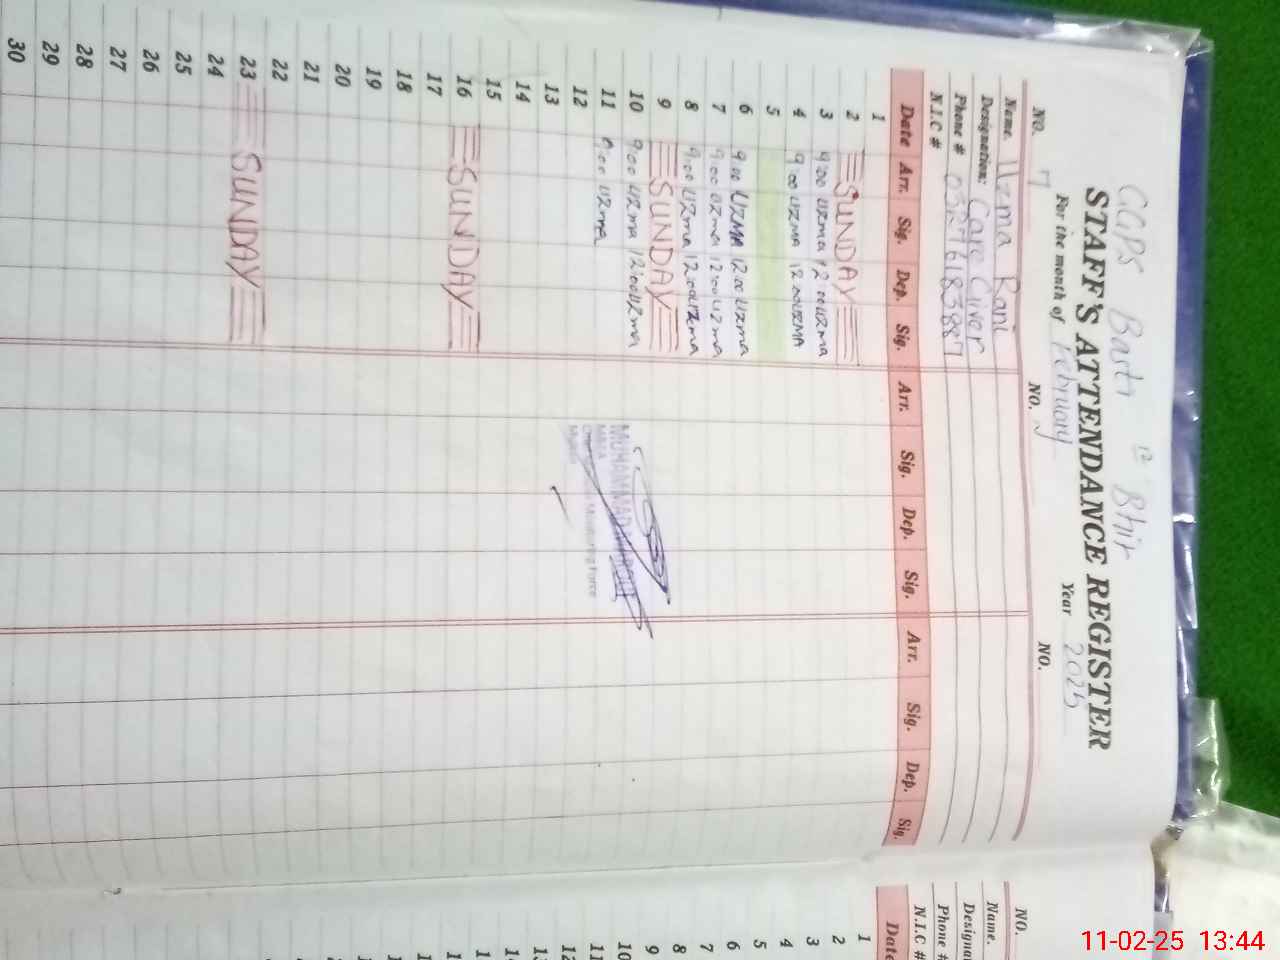 GGPS Basti Bhir
STAFF'S ATTENDANCE REGISTER
For the month of February Year 2025
NO. 7 NO. NO.
Name. Uzma Rani
Designation: Care Giver
Phone # 03276183887
N.I.C #
Date Arr. Sig. Dep. Sig. Arr. Sig. Dep. Sig. Arr. Sig. Dep. Sig.
1
2 SUNDAY
3 9:00 Uzma 12:00 Uzma
4 9:00 UZMA 12:00 UZMA
5
6 9:00 UZMA 12:00 Uzma
7 9:00 Uzma 12:00 Uzma
8 9:00 Uzma 12:00 Uzma
9 SUNDAY
10 9:00 Uzma 12:00 Uzma
11 9:00 Uzma
12
13
14
15
16 SUNDAY
17
18
19
20
21
22
23 SUNDAY
24
25
26
27
28
29
30
MUHAMMAD
Monitoring Force
NO.
Name.
Phone #
N.I.C #
Date
1
2
3
4
5
6
7
8
9
10
11
12
11-02-25 13:44